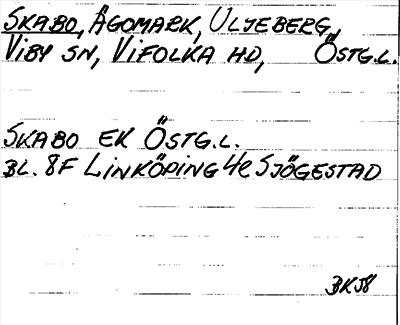 SKABO, ÄGOMARK, ULJEBERG,
VIBY SN, VIFOLKA HD, ÖSTG.L.
SKABO EK ÖSTG.L.
BL. 8F LINKÖPING 4e SJÖGESTAD
BK58